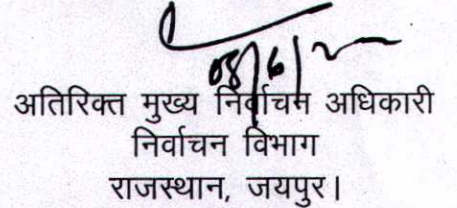 08/6/2
अतिरिक्त मुख्य निर्वाचन अधिकारी
निर्वाचन विभाग
राजस्थान, जयपुर।